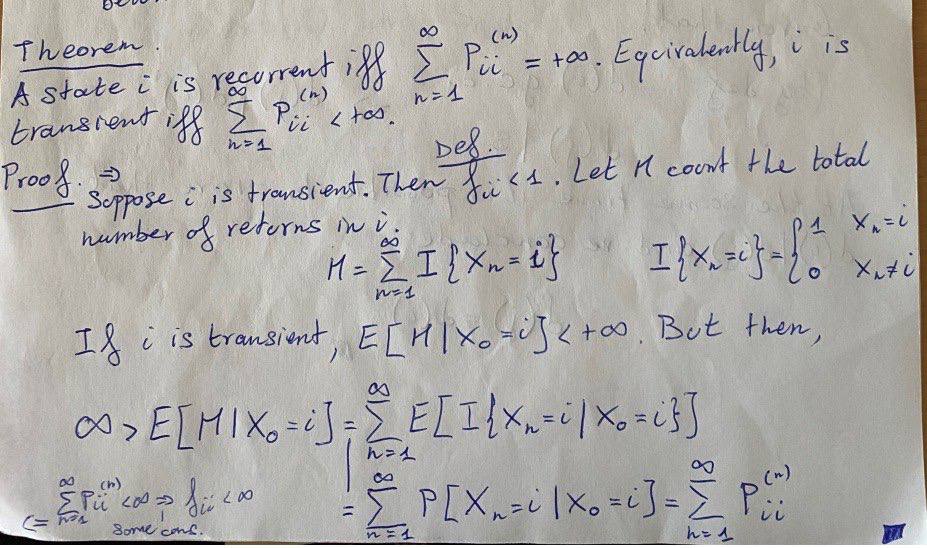 Theorem.
A state i is recurrent iff ∑_{n=1}^{∞} P_{ii}^{(n)} = +∞. Equivalently, i is
transient iff ∑_{n=1}^{∞} P_{ii}^{(n)} < +∞.
Def.
Proof. ⇒ Suppose i is transient. Then f_{ii} < 1. Let M count the total
number of returns in i.
M = ∑_{n=1}^{∞} I{X_n = i} I{X_n = i} = { 1 X_n = i
0 X_n ≠ i
If i is transient, E[M | X_0 = i] < +∞. But then,
∞ > E[M | X_0 = i] = ∑_{n=1}^{∞} E[I{X_n = i | X_0 = i}]
= ∑_{n=1}^{∞} P[X_n = i | X_0 = i] = ∑_{n=1}^{∞} P_{ii}^{(n)}
(= ∑_{n=1}^{∞} P_{ii}^{(n)} < ∞ ⇒ f_{ii} < ∞
some cons.